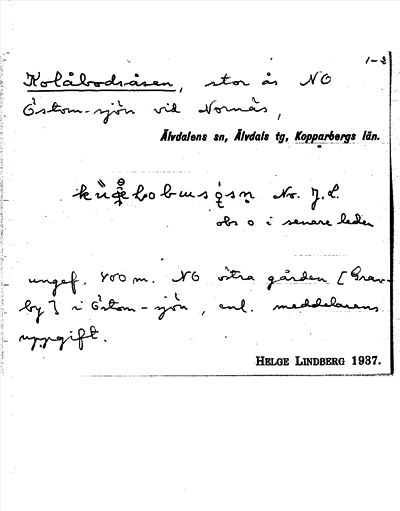 1-2
Kolåbodsåsen, stor ås NO
Östom-sjön vid Nornäs,
Älvdalens sn, Älvdals tg, Kopparbergs län.
No. J. L.
obs o i senare leden
ungef. 400 m. NO östra gården [Grav-
by] i Östom-sjön, enl. meddelarens
uppgift.
HELGE LINDBERG 1937.